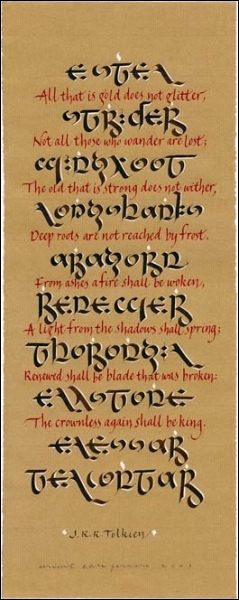 ESTEL
All that is gold does not glitter,
STR:DER
Not all those who wander are lost;
W:NGFOOT
The old that is strong does not wither,
LONGSHANKS
Deep roots are not reached by frost.
ARAGORN
From ashes a fire shall be woken,
RENEWER
A light from the shadows shall spring;
THORONG:L
Renewed shall be blade that was broken:
ELFSTONE
The crownless again shall be king.
ELESSAR
TELCONTAR
J.R.R Tolkien